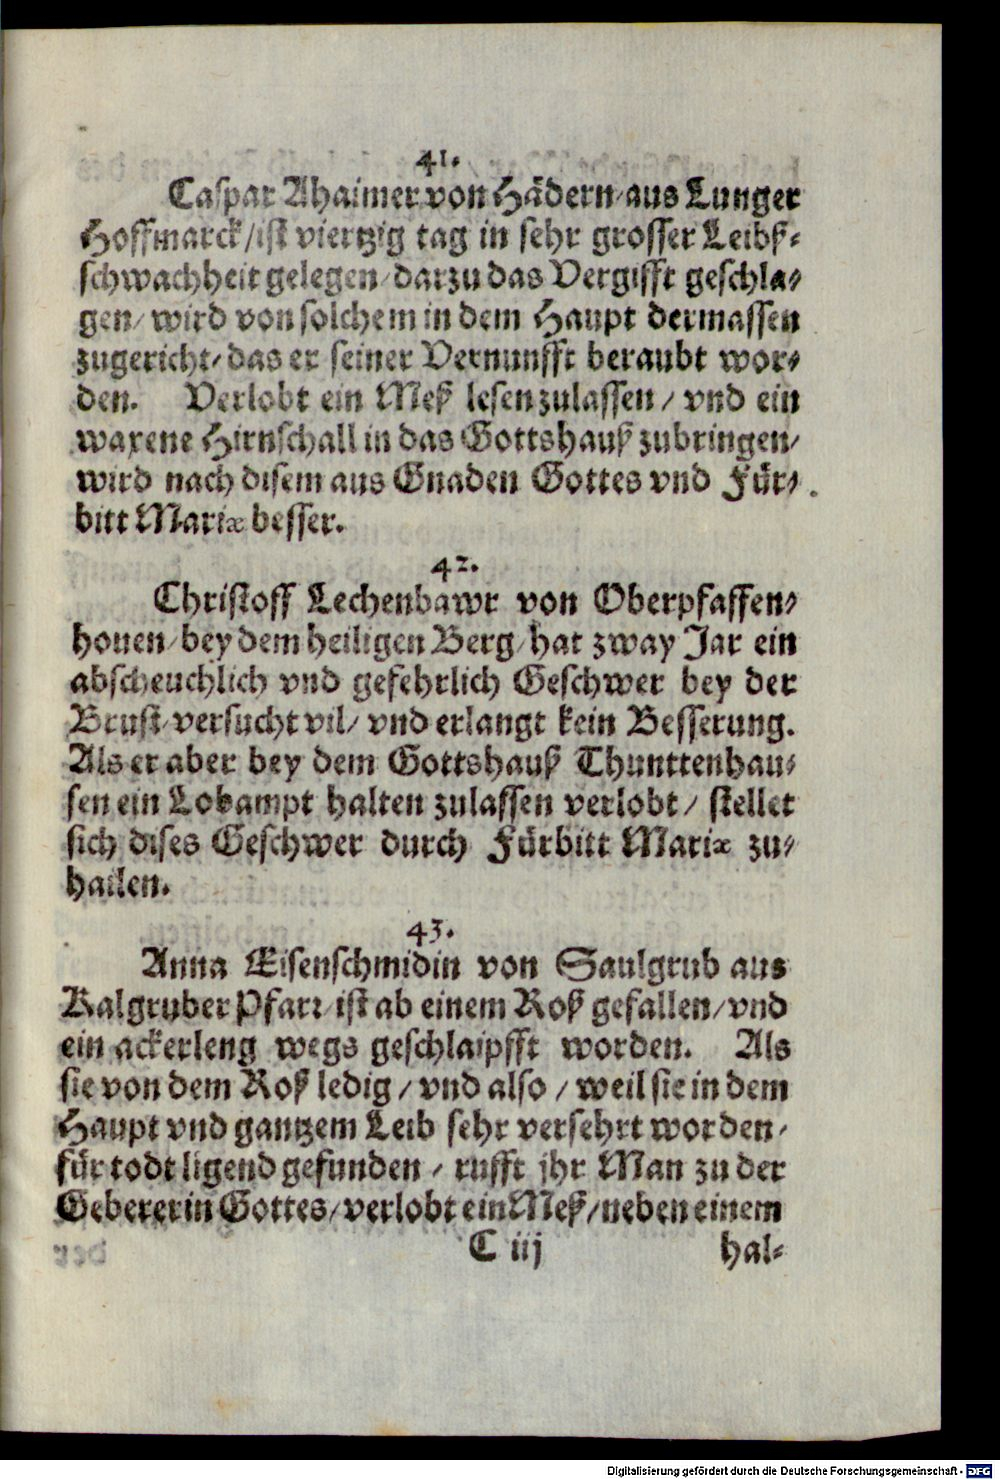 41.
Caspar Ahaimer von Hädern/ aus Lunger
Hoffmarck/ ist viertzig tag in sehr grosser Leibß-
schwachheit gelegen/ darzu das Vergifft geschla-
gen/ wird von solchem in dem Haupt dermassen
zugericht/ das er seiner Vernunfft beraubt wor-
den. Verlobt ein Meß lesen zulassen/ vnd ein
waxene Hirnschall in das Gottshauß zubringen/
wird nach disem aus Gnaden Gottes vnd Für-
bitt Mariæ besser.
42.
Christoff Lechenbawr von Oberpfaffen-
houen/ bey dem heiligen Berg/ hat zway Jar ein
abscheuchlich vnd gefehrlich Geschwer bey der
Brust/ versucht vil/ vnd erlangt kein Besserung.
Als er aber bey dem Gottshauß Thunttenhau-
sen ein Lobampt halten zulassen verlobt/ stellet
sich dises Geschwer durch Fürbitt Mariæ zu-
hailen.
43.
Anna Eisenschmidin von Saulgrub aus
Kalgruber Pfarr/ ist ab einem Roß gefallen/ vnd
ein ackerleng wegs geschlaipfft worden. Als
sie von dem Roß ledig/ vnd also/ weil sie in dem
Haupt vnd gantzem Leib sehr versehrt worden/
für todt ligend gefunden/ rufft jhr Man zu der
Gebererin Gottes/ verlobt ein Meß/ neben einem
C iij hal-
Digitalisierung gefördert durch die Deutsche Forschungsgemeinschaft - DFG